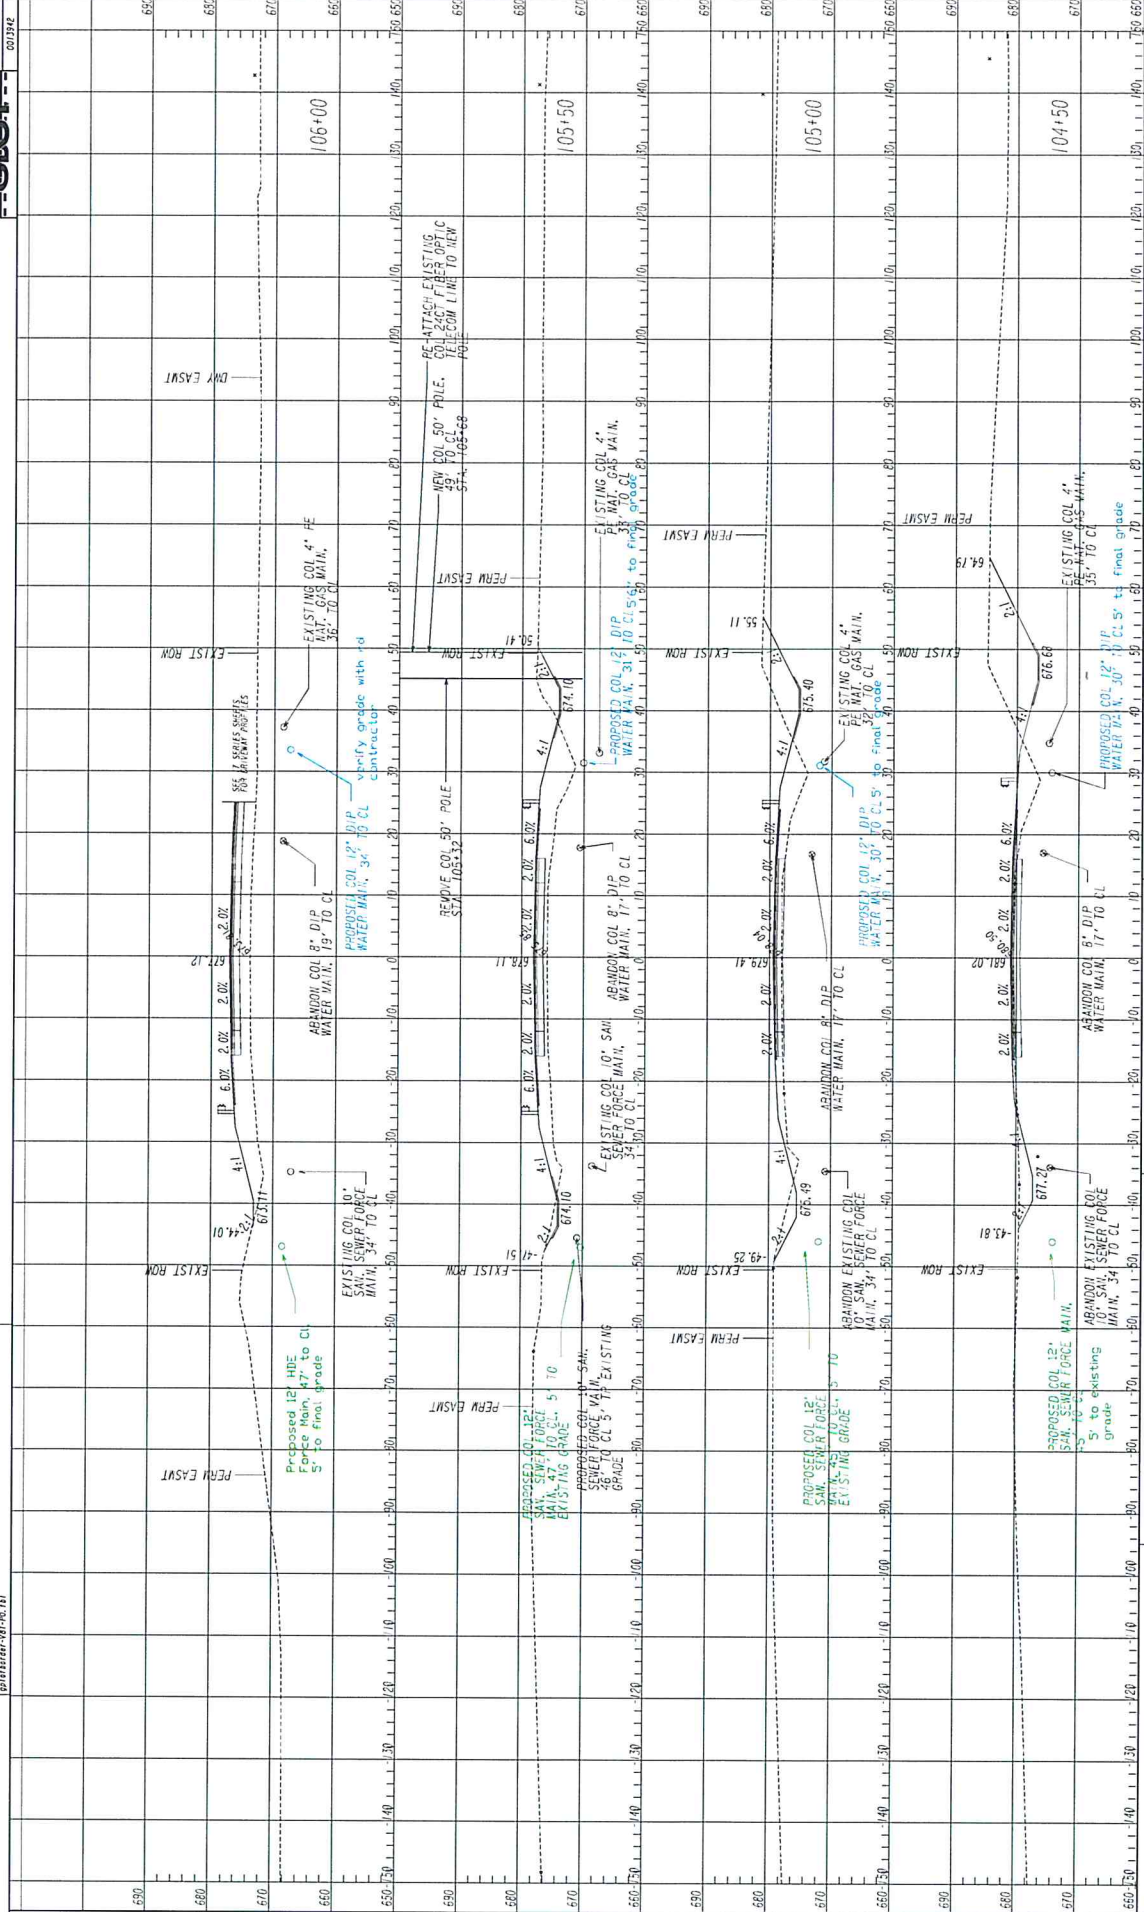 0013942
106+00
DWY EASMT
EXIST ROW
SEE 17 SERIES SHEETS
FOR DRIVEWAY PROFILES
EXISTING COL 4" PE
NAT. GAS MAIN.
36' TO CL
verify grade with rd
contractor
PROPOSED COL 12" DIP
WATER MAIN. 34' TO CL
ABANDON COL 8" DIP
WATER MAIN. 19' TO CL
677.12
2.0%
2.0%
2.0%
6.0%
4:1
2:1
-44.01
EXIST ROW
EXISTING COL 10"
SAN. SEWER FORCE
MAIN. 34' TO CL
Proposed 12" HDE
Force Main. 47' to CL
5' to final grade
PERM EASMT
690
680
670
105+50
RE-ATTACH EXISTING
COL 24CT FIBER OPTIC
TELECOM LINE TO NEW
POLE
NEW COL 50' POLE.
49' TO CL
STA. 105+68
PERM EASMT
EXIST ROW
50.41
2:1
674.10
4:1
EXISTING COL 4"
PE NAT. GAS MAIN.
33' TO CL
PROPOSED COL 12" DIP
WATER MAIN. 31' TO CL 5'6" to final grade
REMOVE COL 50' POLE
STA. 105+32
6.0%
2.0%
2.0%
678.11
2.0%
2.0%
6.0%
ABANDON COL 8" DIP
WATER MAIN. 17' TO CL
EXISTING COL 10" SAN
SEWER FORCE MAIN.
34' TO CL
4:1
674.10
2:1
-47.51
EXIST ROW
PERM EASMT
PROPOSED COL 12"
SAN. SEWER FORCE
MAIN. 47' TO CL. 5' TO
EXISTING GRADE
PROPOSED COL 10" SAN.
SEWER FORCE MAIN.
46' TO CL 5' TP EXISTING
GRADE
690
680
670
105+00
PERM EASMT
EXIST ROW
55.11
2:1
675.40
4:1
EXISTING COL 4"
PE NAT. GAS MAIN.
32' TO CL
PROPOSED COL 12" DIP
WATER MAIN. 30' TO CL 5' to final grade
6.0%
2.0%
2.0%
679.41
2.0%
2.0%
ABANDON COL 8" DIP
WATER MAIN. 17' TO CL
4:1
675.49
2:1
-49.25
EXIST ROW
PERM EASMT
ABANDON EXISTING COL
10" SAN. SEWER FORCE
MAIN. 34' TO CL
PROPOSED COL 12"
SAN. SEWER FORCE
MAIN. 45' TO CL. 5' TO
EXISTING GRADE
690
680
670
104+50
PERM EASMT
64.79
2:1
EXIST ROW
676.68
4:1
EXISTING COL 4"
PE NAT. GAS MAIN.
35' TO CL
PROPOSED COL 12" DIP
WATER MAIN. 30' TO CL 5' to final grade
6.0%
2.0%
2.0%
681.02
2.0%
2.0%
ABANDON COL 8" DIP
WATER MAIN. 17' TO CL
4:1
677.27
2:1
-43.81
EXIST ROW
ABANDON EXISTING COL
10" SAN. SEWER FORCE
MAIN. 34' TO CL
PROPOSED COL 12"
SAN. SEWER FORCE MAIN.
45' TO CL
5' to existing
grade
690
680
670
660
-150 -140 -130 -120 -110 -100 -90 -80 -70 -60 -50 -40 -30 -20 -10 0 10 20 30 40 50 60 70 80 90 100 110 120 130 140 150